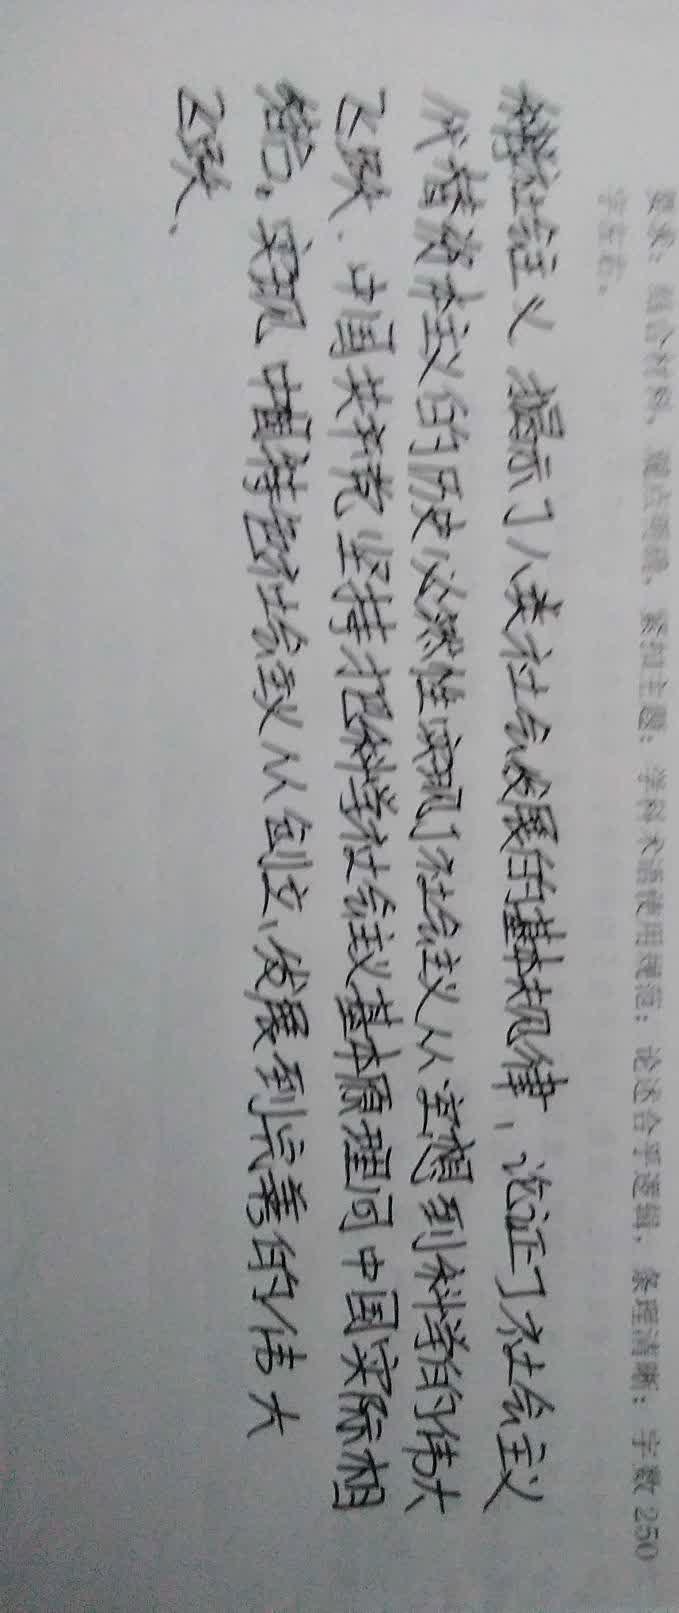 要求：结合材料，观点明确，紧扣主题；学科术语使用规范；论述合乎逻辑，条理清晰；字数250
字左右。
科学社会主义揭示了人类社会发展的基本规律，论证了社会主义
代替资本主义的历史必然性实现了社会主义从空想到科学的伟大
飞跃．中国共产党坚持把科学社会主义基本原理同中国实际相
结合，实现中国特色社会主义从创立、发展到完善的伟大
飞跃、